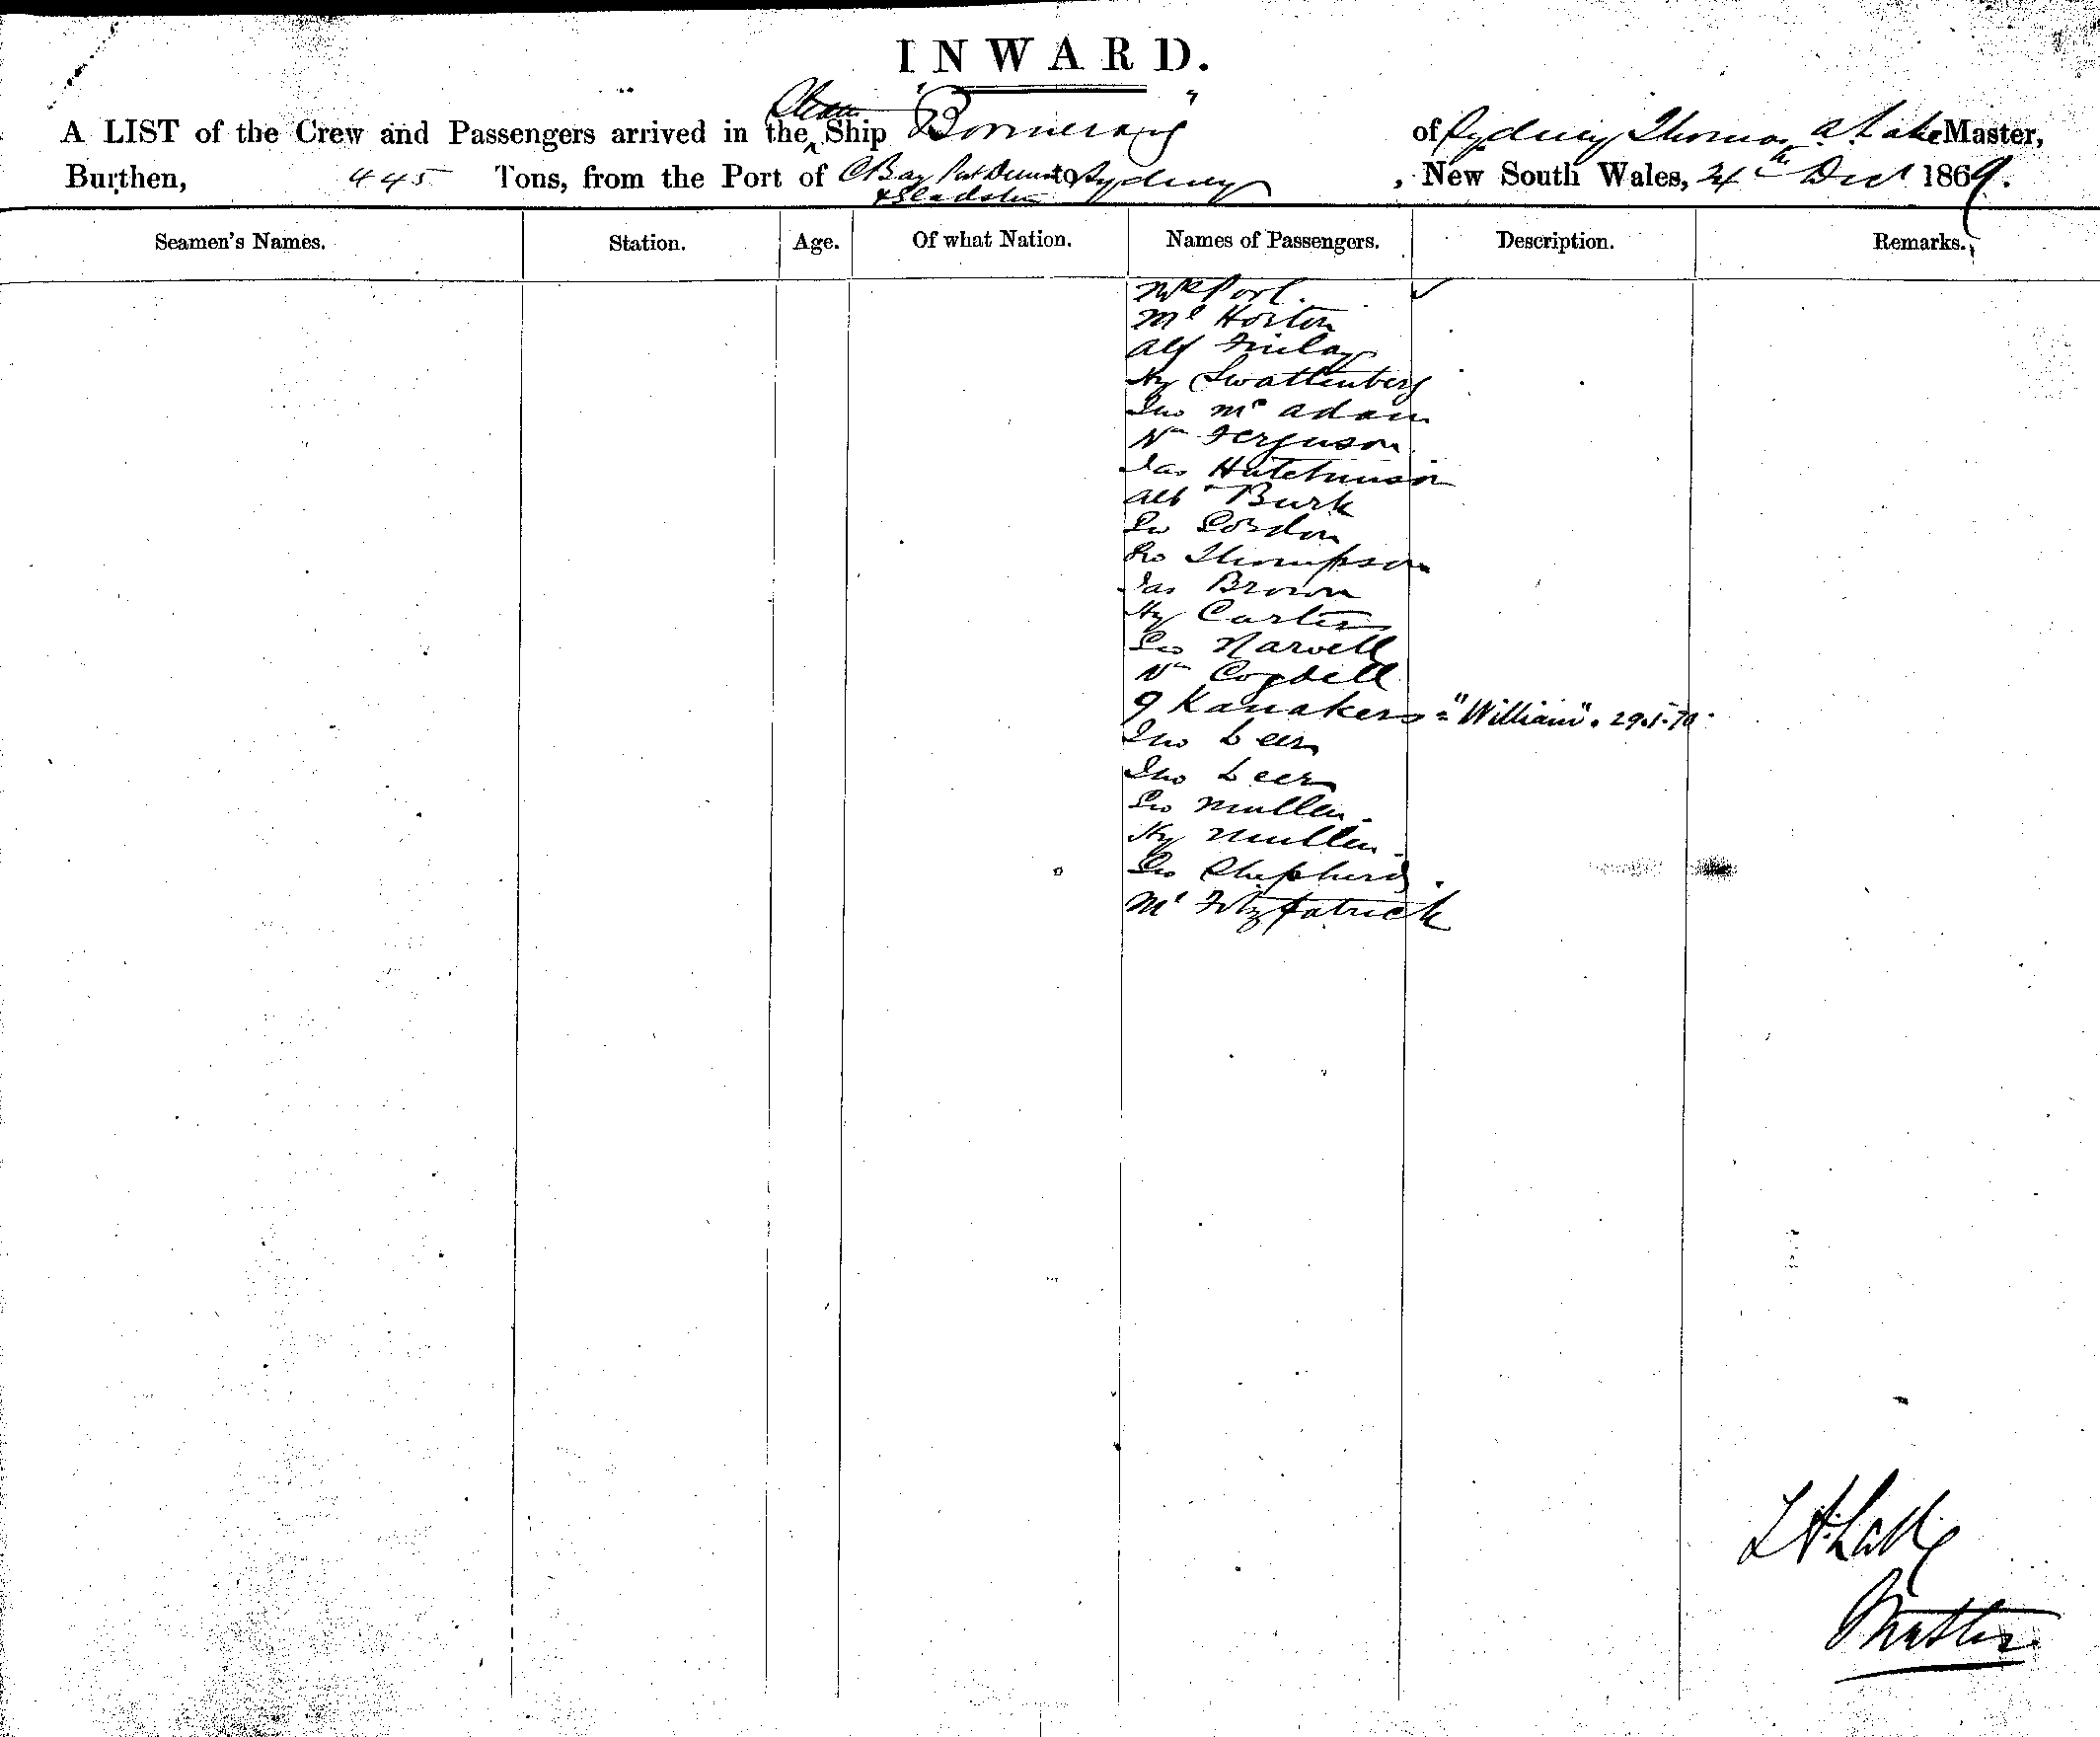 INWARD.
A LIST of the Crew and Passengers arrived in the Steam Ship "Boomerang" of Sydney Thomas A. Lake Master,
Burthen, 445 Tons, from the Port of C Bay Port Denison & Gladstone to Sydney, New South Wales, 24th Decr 1869.
Seamen's Names. Station. Age. Of what Nation. Names of Passengers. Description. Remarks.
Mr Port.
Mr Horton
Alf Finlay
Hy Swattenberg
Jno Mc Adam
Wm Ferguson
Jas Hutchinson
Alb Burk
Geo Gordon
Geo Thompson
Jas Brown
Hy Carter
Geo Narvell
Wm Cogdell
9 Kanakers = "William". 29.1.70.
Jno Leer
Jno Leer
Geo Mullen.
Hy Mullen.
Geo Shepherd.
Mr Fitzpatrick
Master